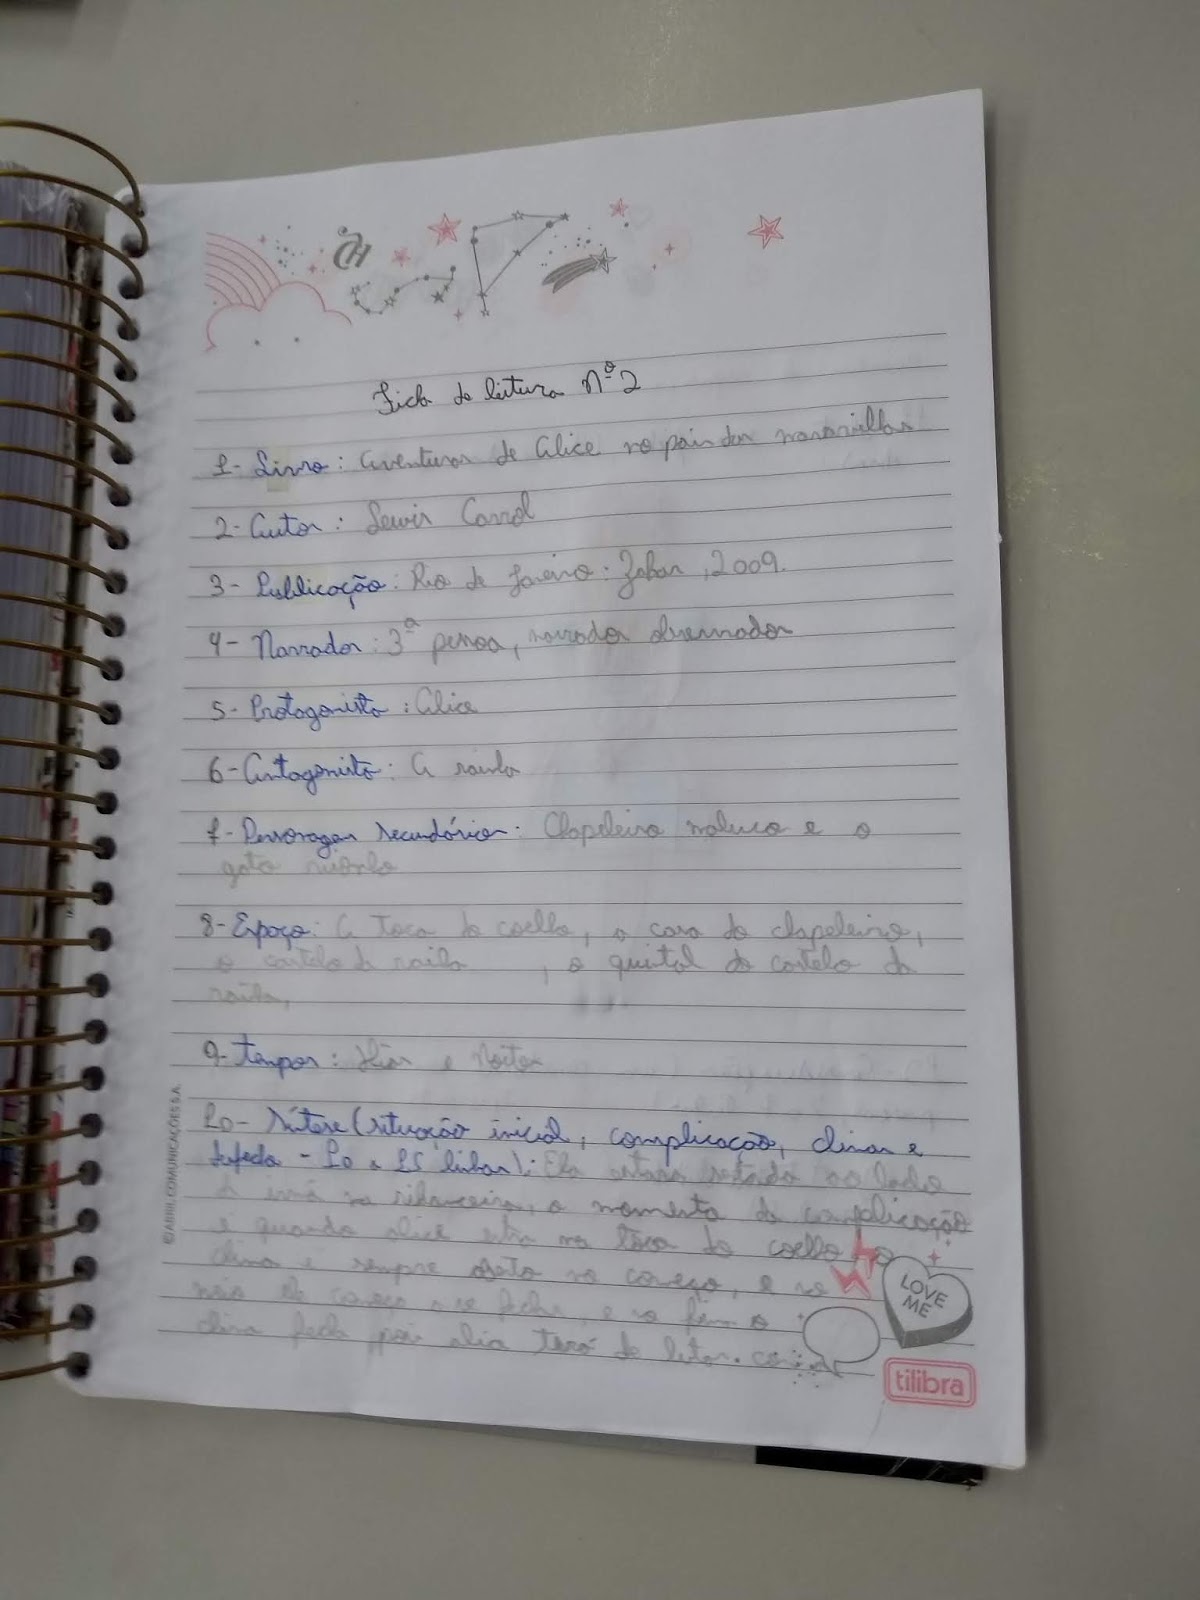 Ficha de leitura nº 2
1- Livro: Aventuras de Alice no país das maravilhas
2- Autor: Lewis Carrol
3- Publicação: Rio de Janeiro: Zahar, 2009.
4- Narrador: 3ª pessoa, narrador observador
5- Protagonista: Alice
6- Antagonista: A rainha
7- Personagens secundários: Chapeleiro maluco e o
gato risonho
8- Espaço: A toca do coelho, a casa do chapeleiro,
o castelo da rainha, o quintal do castelo da
rainha,
9- Tempos: Dias e Noites
10- Síntese (situação inicial, complicação, clímax e
desfecho - 10 a 15 linhas): Ela estava sentada ao lado
da irmã na ribanceira, o momento da complicação
é quando alice entra na toca do coelho, o
clima é sempre no começo, e no
meio ele começa a se fechar, e no fim o
clima fecha pois alice terá de lutar.
LOVE
ME
tilibra
©ABRIL COMUNICAÇÕES S.A.